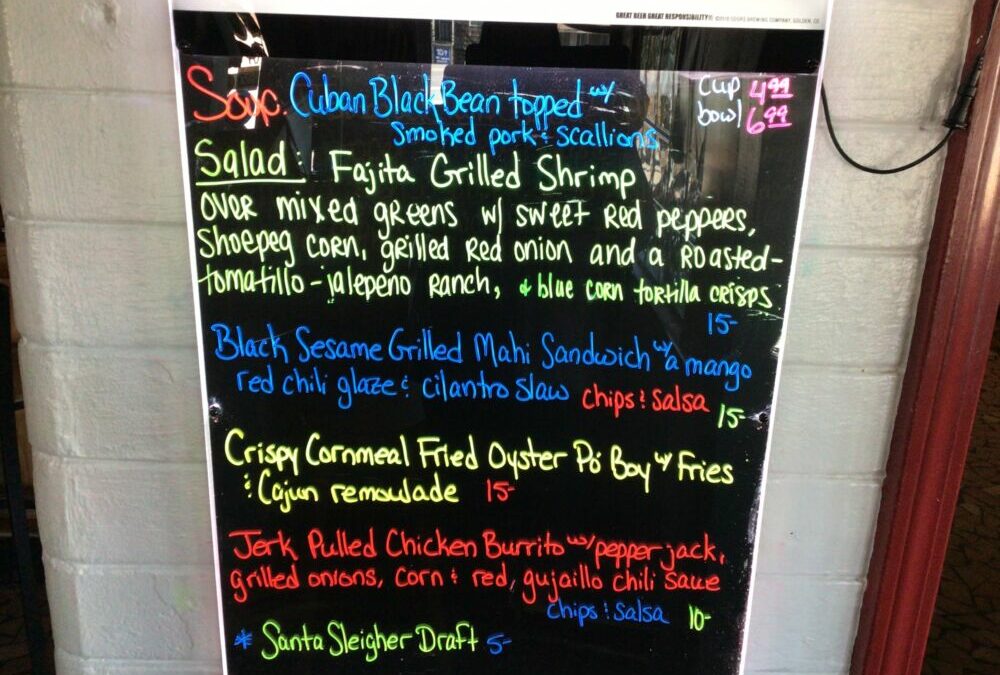 GREAT BEER GREAT RESPONSIBILITY® ©2010 COORS BREWING COMPANY, GOLDEN, CO
Soup: Cuban Black Bean topped w/ cup 4.99
smoked pork & scallions bowl 6.99
Salad: Fajita Grilled Shrimp
over mixed greens w/ sweet red peppers,
shoepeg corn, grilled red onion and a roasted-
tomatillo-jalepeno ranch, & blue corn tortilla crisps
15-
Black Sesame Grilled Mahi Sandwich w/ a mango
red chili glaze & cilantro slaw chips & salsa 15-
Crispy Cornmeal Fried Oyster Po' Boy w/ Fries
& Cajun remoulade 15-
Jerk Pulled Chicken Burrito w/ pepper jack,
grilled onions, corn & red, gujaillo chili sauce
chips & salsa 10-
* Santa Sleigher Draft 5-